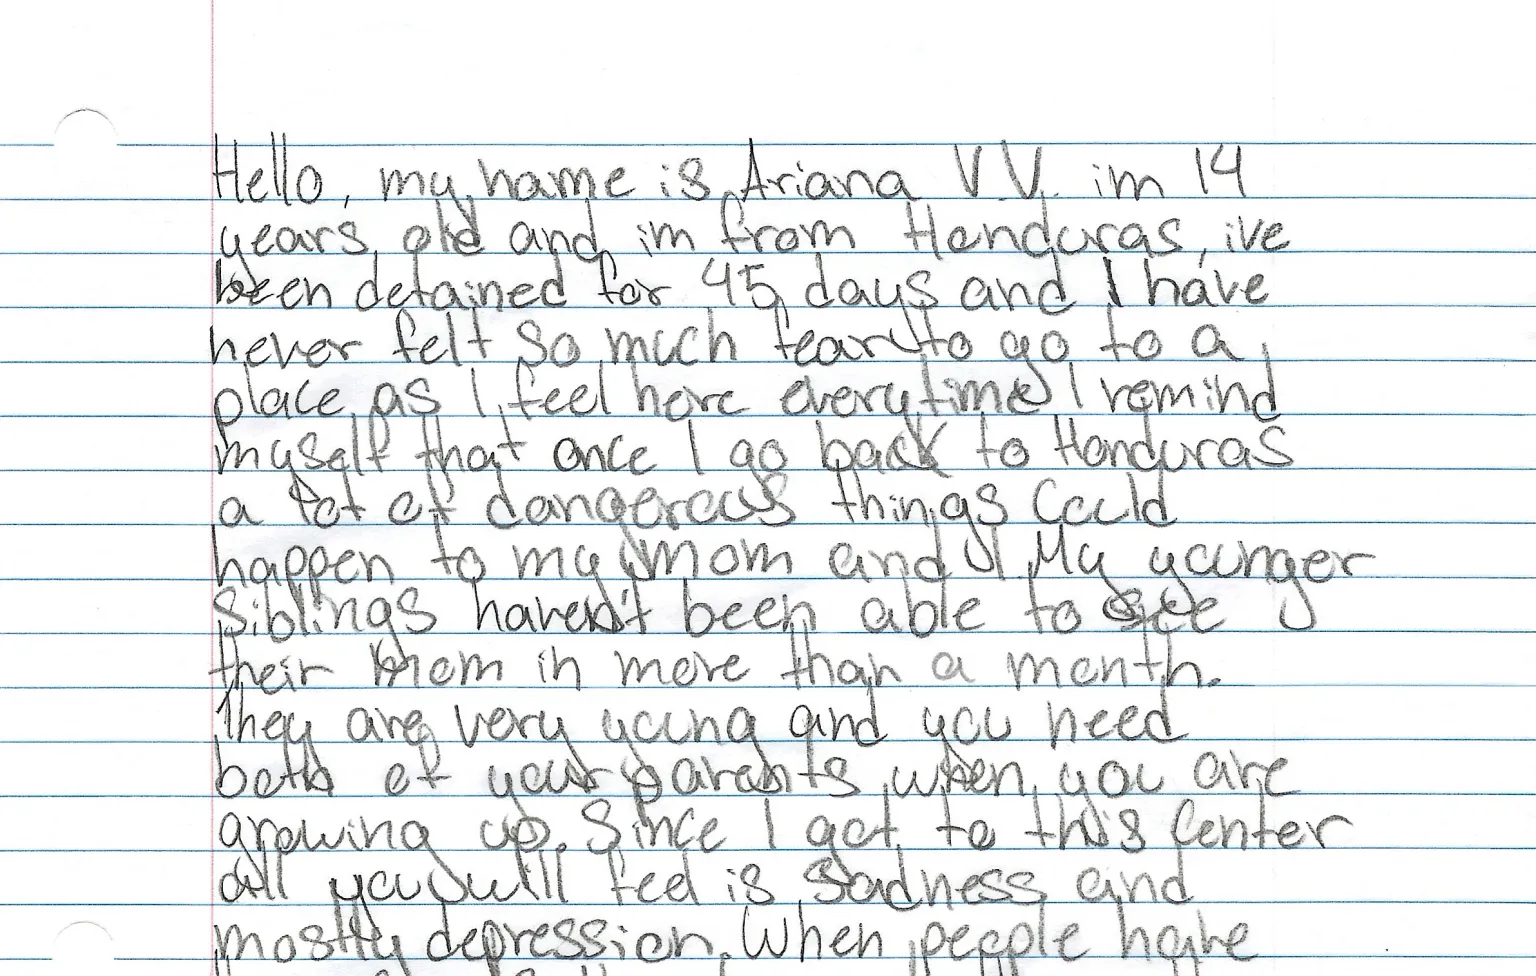 Hello, my name is Ariana V.V. im 14
years old and im from Honduras, ive
been detained for 45 days and I have
never felt so much fear to go to a
place as I feel here everytime I remind
myself that once I go back to Honduras
a lot of dangerous things could
happen to my mom and I. My younger
siblings haven't been able to see
their mom in more than a month.
They are very young and you need
both of your parents when you are
growing up. Since I got to this Center
all you will feel is sadness and
mostly depression. When people have